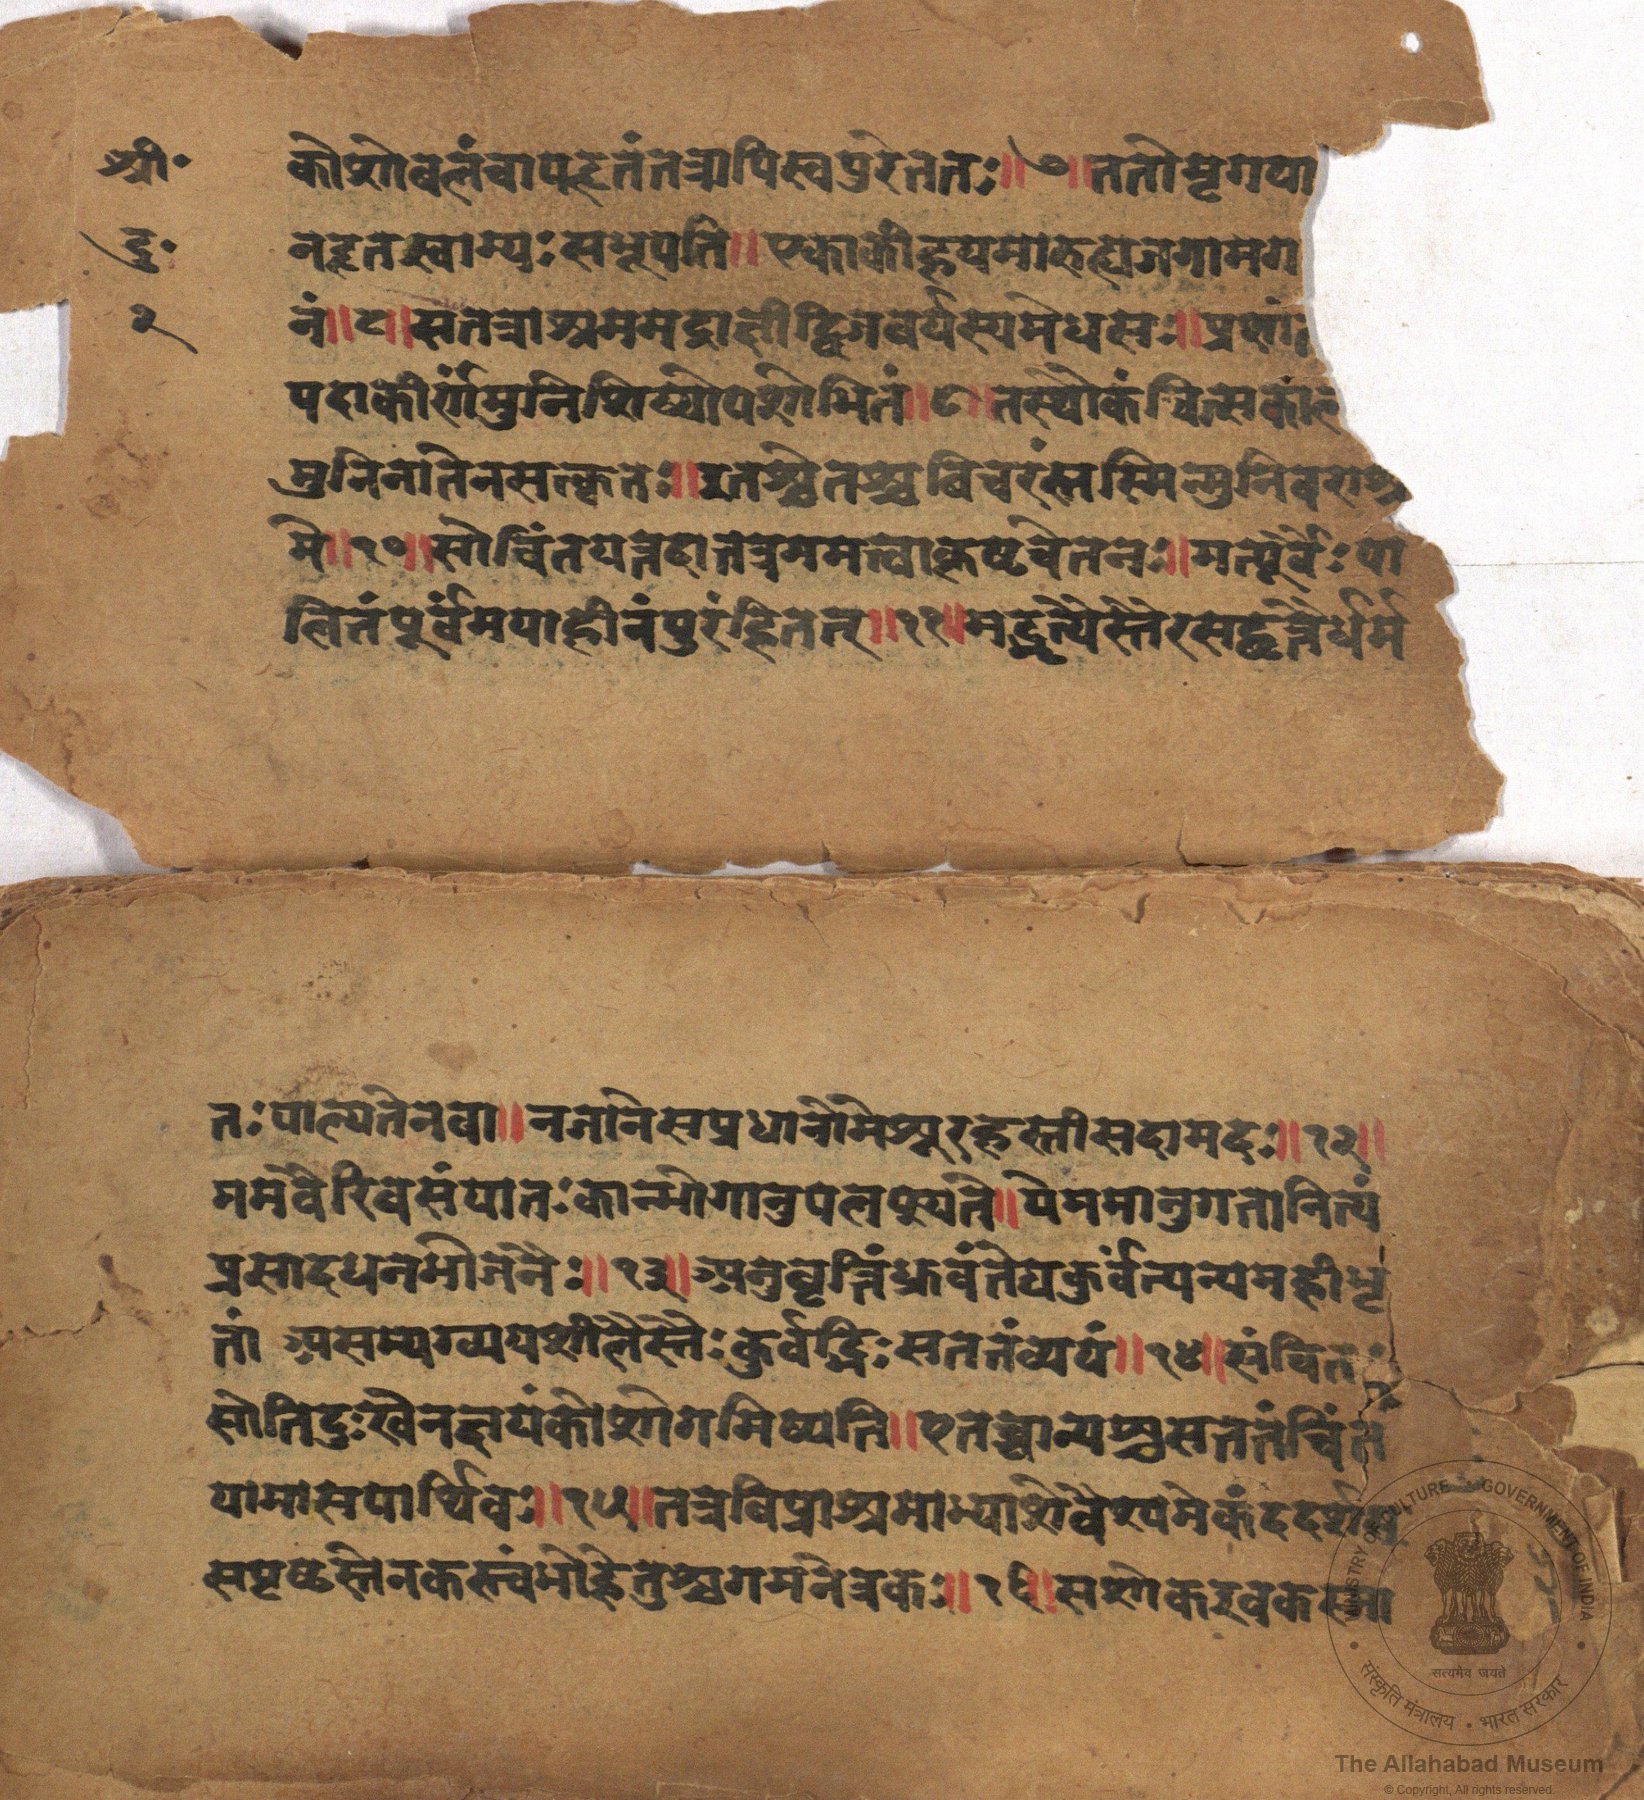 श्री॰
दु॰
२
कोशोबलंचापहृतंतत्रापिस्वपुरेततः॥७॥ततोमृगया
नहृतस्वाम्यःसभूपति॥एकाकीहयमारुह्यजगामग
नं॥८॥सतत्राश्रममद्राक्षीद्द्विजवर्यस्यमेधसः॥प्रशां
पदाकीर्णंमुनिशिष्योपशोभितं॥९॥तस्थौकंचित्सकाल
मुनिनातेनसत्कृतः॥इतश्चेतश्चविचरंस्तस्मिन्मुनिवराश्र
मे॥१०॥सोचिंतयत्तदातत्रममत्वाकृष्टचेतनः॥मत्पूर्वैःपा
लितंपूर्वंमयाहीनंपुरंहितत्॥११॥मद्भृत्यैस्तैरसद्वृत्तैर्धर्म
तःपाल्यतेनवा॥नजानेसप्रधानोमेशूरहस्तीसदामदः॥१२॥
ममवैरिवसंयातःकान्भोगानुपलप्स्यते॥येममानुगतोनित्यं
प्रसादधनभोजनैः॥१३॥अनुवृत्तिंध्रुवंतेद्यकुर्वंत्यन्यमहीभृ
तां असम्यग्व्ययशीलैस्तैःकुर्वद्भिःसततंव्ययं॥१४॥संचितः
सोतिदुःखेनक्षयंकोशोगमिष्यति॥एतच्चान्यच्चसततंचिंत
यामासपार्थिवः॥१५॥तत्रविप्राश्रमाभ्याशेवैश्यमेकंददर्शसः
सपृष्टस्तेनकस्त्वंभोहेतुश्चगमनेत्रकः॥१६॥सशोकइवकस्मा
MINISTRY OF CULTURE GOVERNMENT OF INDIA
सत्यमेव जयते
संस्कृति मंत्रालय • भारत सरकार
The Allahabad Museum
© Copyright, All rights reserved.